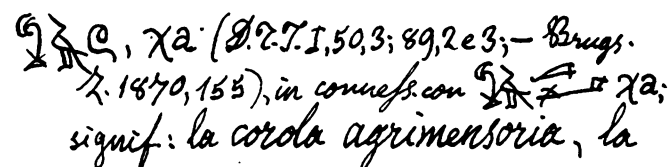 𓆼𓍢, χa. (D.T.T.I,50,3; 89,2 e 3; — Brugs.
Z. 1870, 155), in conness. con 𓆼 χa,
signif: la corda agrimensoria, la